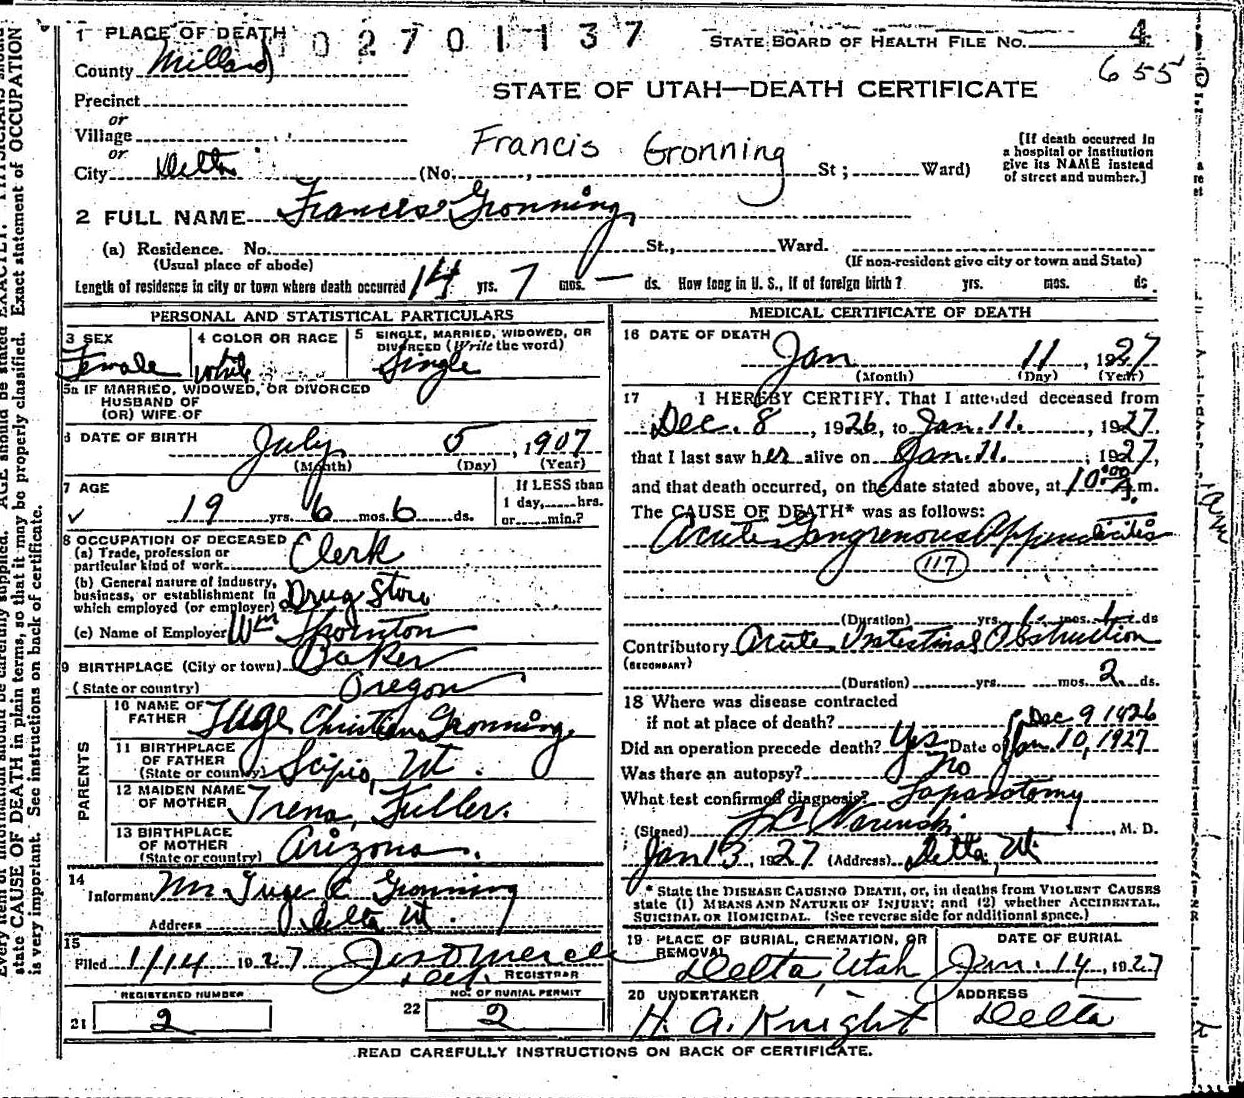 1 PLACE OF DEATH
0 2 7 0 1 1 3 7
STATE BOARD OF HEALTH FILE No. 4
655
County Millard
STATE OF UTAH—DEATH CERTIFICATE
Precinct
or
Village
or
City Delta (No. , St ; Ward)
Francis Gronning
[If death occurred in
a hospital or institution
give its NAME instead
of street and number.]
2 FULL NAME Francis Gronning
(a) Residence. No. St., Ward.
(Usual place of abode) (If non-resident give city or town and State)
Length of residence in city or town where death occurred 14 yrs. 7 mos. — ds. How long in U. S., if of foreign birth? yrs. mos. ds.
PERSONAL AND STATISTICAL PARTICULARS
3 SEX
Female
4 COLOR OR RACE
white
5 SINGLE, MARRIED, WIDOWED, OR
DIVORCED (Write the word)
Single
5a IF MARRIED, WIDOWED, OR DIVORCED
HUSBAND OF
(OR) WIFE OF
6 DATE OF BIRTH July 5, 1907
(Month) (Day) (Year)
7 AGE
19 yrs. 6 mos. 6 ds.
If LESS than
1 day, hrs.
or min.?
8 OCCUPATION OF DECEASED
(a) Trade, profession or
particular kind of work Clerk
(b) General nature of industry,
business, or establishment in
which employed (or employer) Drug Store
(c) Name of Employer Wm Thornton
9 BIRTHPLACE (City or town) Baker
(State or country) Oregon
PARENTS
10 NAME OF
FATHER Christian Gronning
11 BIRTHPLACE
OF FATHER
(State or country) Scipio, Ut.
12 MAIDEN NAME
OF MOTHER Trena Fuller.
13 BIRTHPLACE
OF MOTHER
(State or country) Arizona.
14
Informant C Gronning
Address Delta Ut.
15
Filed 1/14 1927
REGISTRAR
REGISTERED NUMBER
21 2
NO. OF BURIAL PERMIT
22 2
MEDICAL CERTIFICATE OF DEATH
16 DATE OF DEATH
Jan 11, 1927
(Month) (Day) (Year)
17 I HEREBY CERTIFY, That I attended deceased from
Dec. 8, 1926, to Jan. 11., 1927
that I last saw her alive on Jan. 11., 1927,
and that death occurred, on the date stated above, at 10:00 A.m.
The CAUSE OF DEATH* was as follows:
Acute Gangrenous Appendicitis
117
(Duration) yrs. mos. ds
Contributory Acute Intestinal Obstruction
(SECONDARY)
(Duration) yrs. mos. 2 ds.
18 Where was disease contracted
if not at place of death?
Dec 9 1926
Did an operation precede death? Yes Date of Jan. 10, 1927
Was there an autopsy? No
What test confirmed diagnosis? Laparotomy
(Signed) , M. D.
Jan 13, 1927 (Address) Delta, Ut
* State the DISEASE CAUSING DEATH, or, in deaths from VIOLENT CAUSES
state (1) MEANS AND NATURE OF INJURY; and (2) whether ACCIDENTAL,
SUICIDAL OR HOMICIDAL. (See reverse side for additional space.)
19 PLACE OF BURIAL, CREMATION, OR
REMOVAL
Delta, Utah
DATE OF BURIAL
Jan. 14, 1927
20 UNDERTAKER
H. A. Knight
ADDRESS
Delta
READ CAREFULLY INSTRUCTIONS ON BACK OF CERTIFICATE.
state CAUSE OF DEATH in plain terms, so that it may be properly classified. Exact statement of OCCUPATION
is very important. See instructions on back of certificate.